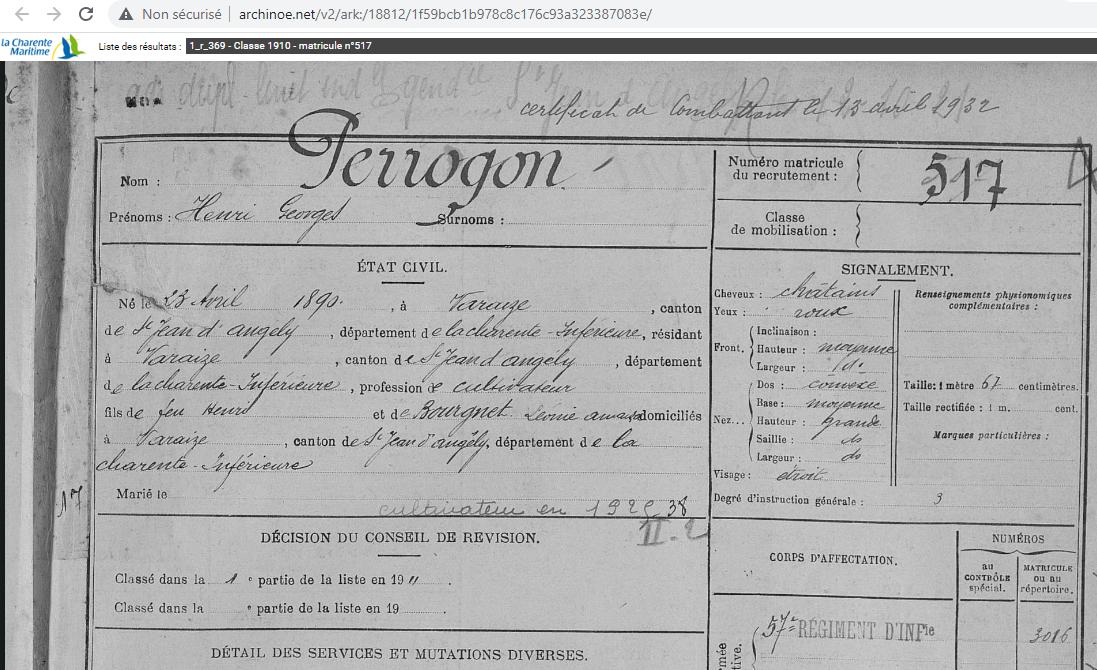 Non sécurisé | archinoe.net/v2/ark:/18812/1f59bcb1b978c8c176c93a323387083e/
la Charente
Maritime
Liste des résultats : 1_r_369 - Classe 1910 - matricule n°517
certificat de Combattant le 13 avril 1932
Nom : Perrogon
Prénoms : Henri Georges Surnoms :
Numéro matricule
du recrutement : 517
Classe
de mobilisation :
ÉTAT CIVIL.
Né le 23 Avril 1890. , à Varaize , canton
de St Jean d'angely , département de la charente-Inférieure, résidant
à Varaize , canton de St Jean d'angély , département
de la charente-Inférieure , profession de cultivateur
fils de feu Henri et de Bourgnet Léonie domiciliés
à Varaize , canton de St Jean d'angély, département de la
charente-Inférieure
Marié le
cultivateur en 19
II.2
17
SIGNALEMENT.
Cheveux : châtains
Yeux : roux
Front. Inclinaison :
Hauteur : moyenne
Largeur : id.
Nez... Dos : convexe
Base : moyenne
Hauteur : grande
Saillie : do
Largeur : do
Visage : étroit
Renseignements physionomiques
complémentaires :
Taille : 1 mètre 67 centimètres.
Taille rectifiée : 1 m. cent.
Marques particulières :
Degré d'instruction générale : 3
DÉCISION DU CONSEIL DE REVISION.
Classé dans la 1e partie de la liste en 1911 .
Classé dans la e partie de la liste en 19 .
DÉTAIL DES SERVICES ET MUTATIONS DIVERSES.
CORPS D'AFFECTATION.
NUMÉROS
au
CONTRÔLE
spécial.
MATRICULE
ou au
répertoire.
57e RÉGIMENT D'INFie 3016